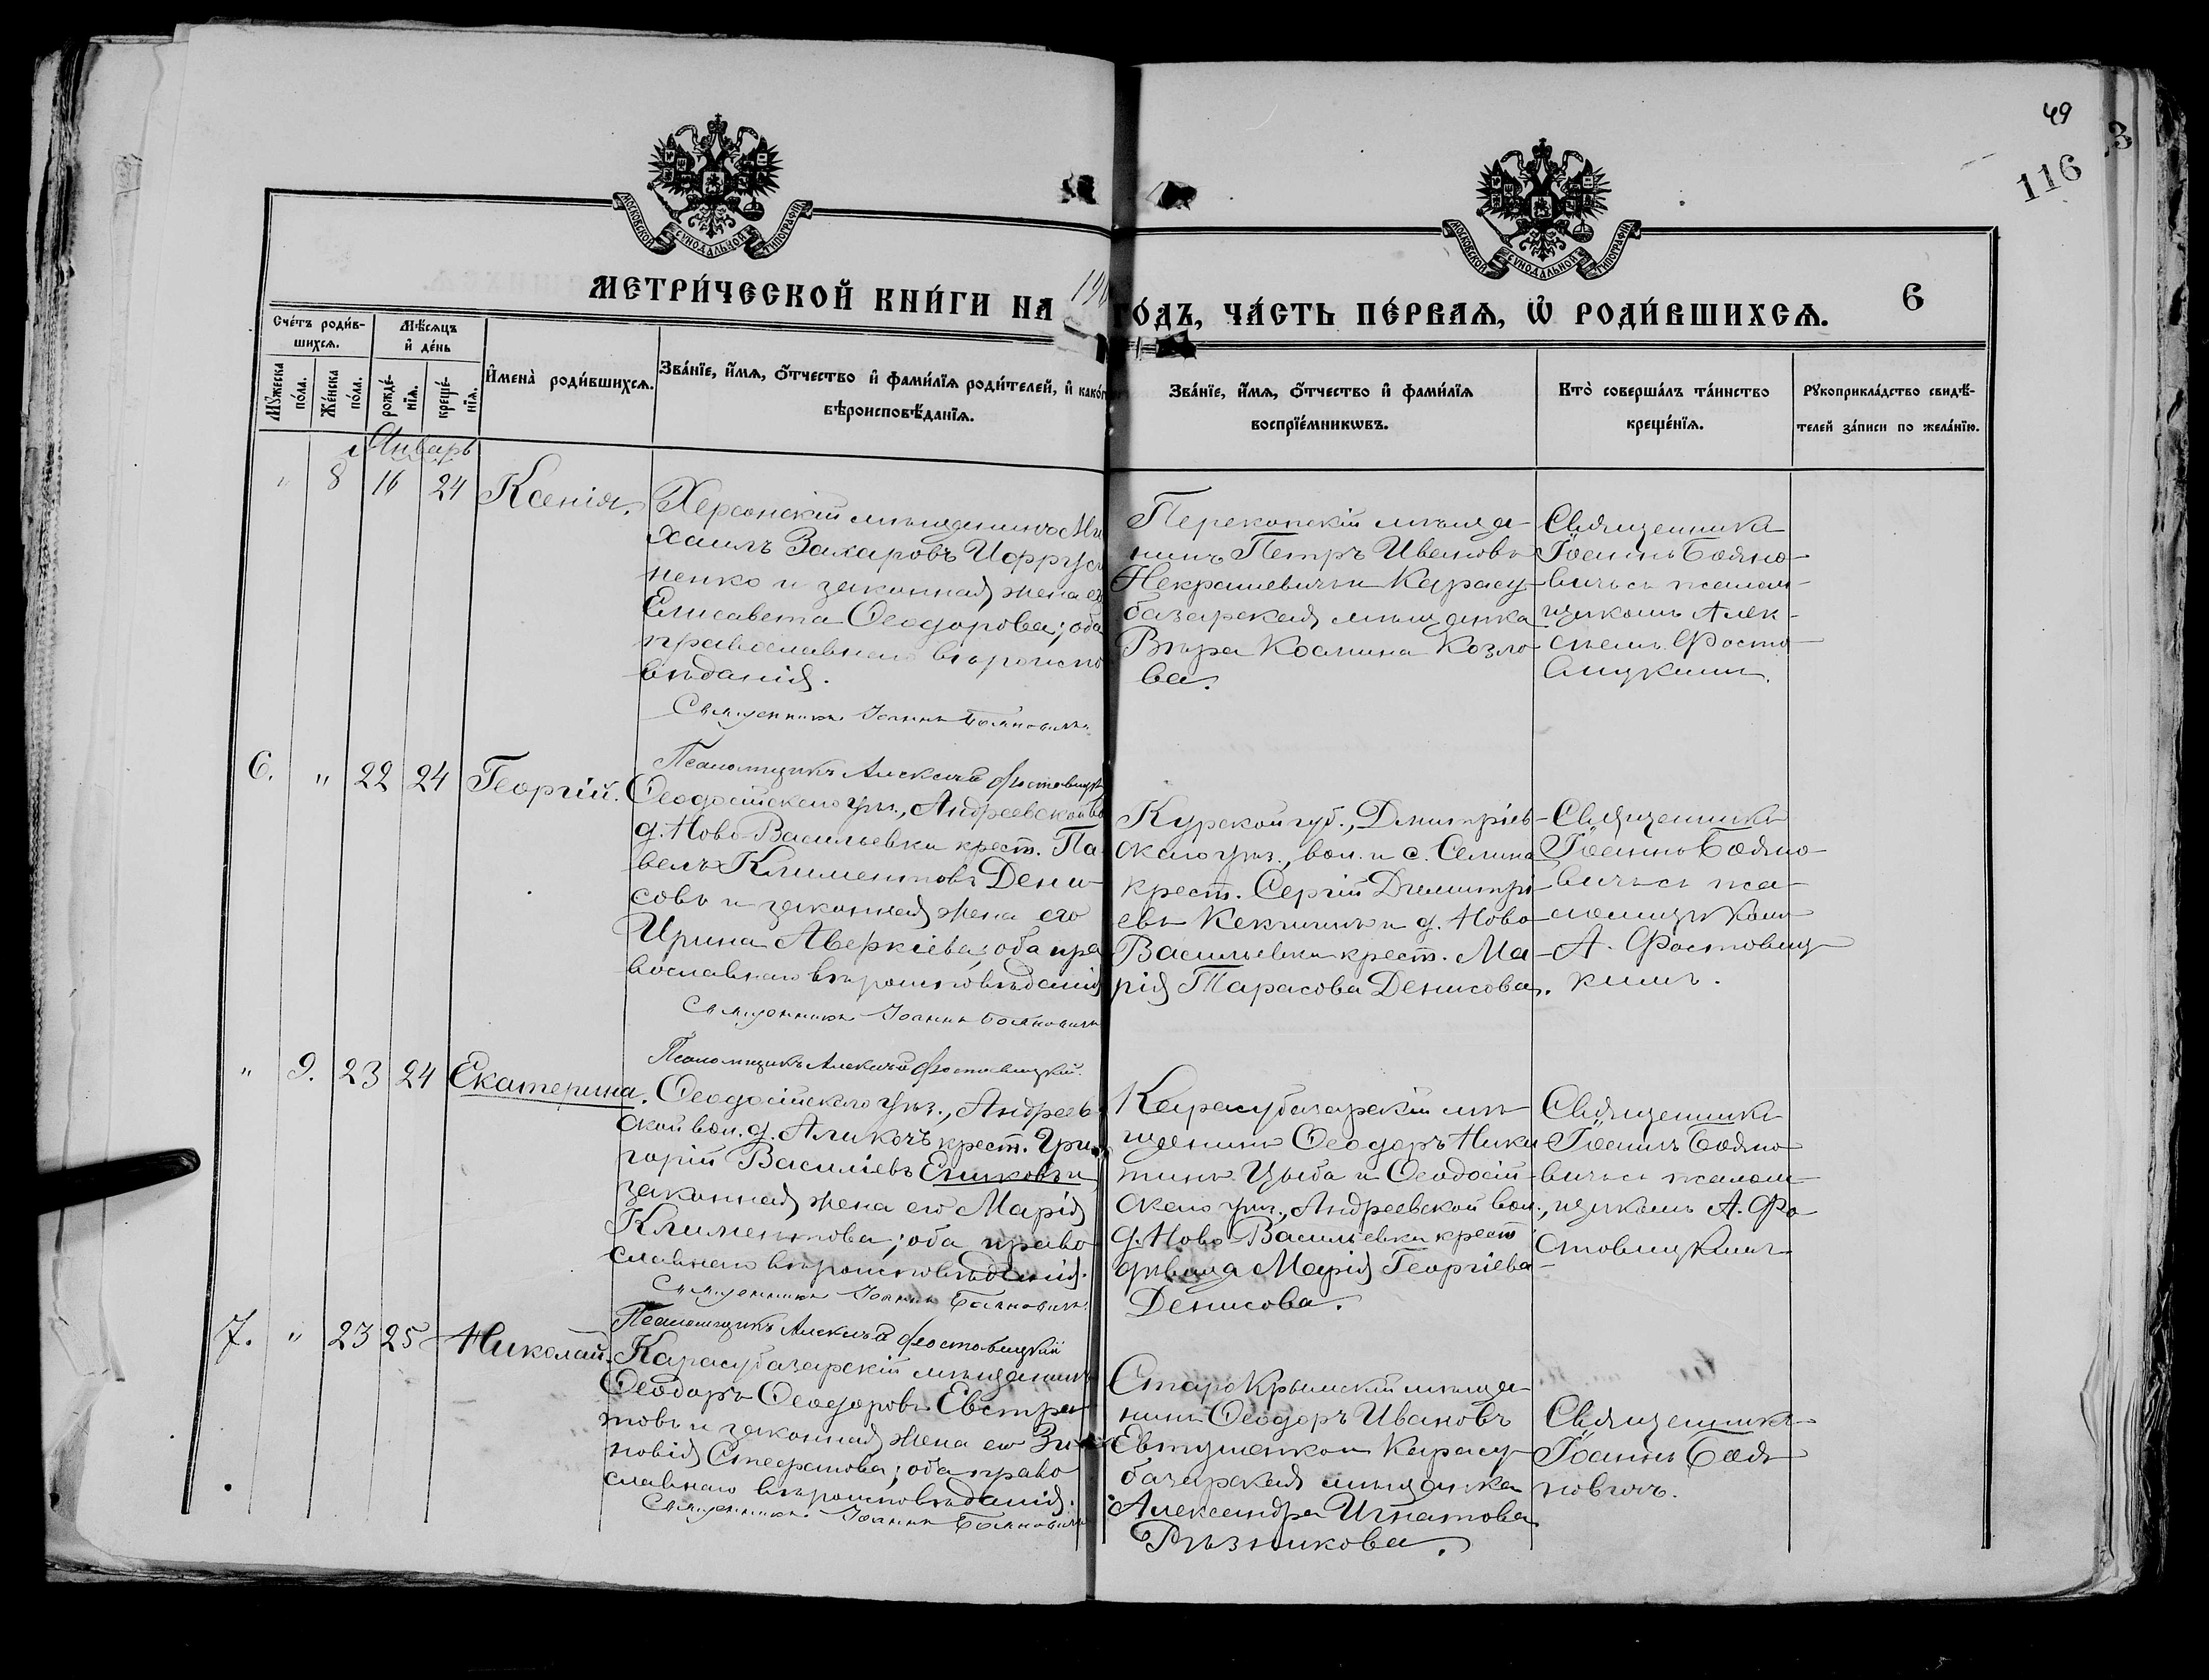 49
116
3
МОСКОВСКОЙ СѴНОДАЛЬНОЙ ТИПОГРАФІИ
МОСКОВСКОЙ СѴНОДАЛЬНОЙ ТИПОГРАФІИ
МЕТРИ́ЧЕСКОЙ КНИ́ГИ НА 19
ГО́ДЪ, ЧА́СТЬ ПЕ́РВАѦ, Ѡ҆ РОДИ́ВШИХСѦ.
6
Сче́тъ роди́в-
шихсѧ.
Мѣ́сѧцъ
и҆ де́нь
Мꙋ́жеска
по́ла.
Же́нска
по́ла.
рожде́-
нїѧ.
креще́-
нїѧ.
И҆мена̀ роди́вшихсѧ.
Зва́нїе, и҆́мѧ, ѻ҆́тчество и҆ фами́лїѧ роди́телей, и҆ како́г
вѣроисповѣ́данїѧ.
Зва́нїе, и҆́мѧ, ѻ҆́тчество и҆ фами́лїѧ
воспрїе́мникѡвъ.
Кто̀ соверша́лъ та́инство
креще́нїѧ.
Рꙋкоприкла́дство свидѣ́-
телей за́писи по жела́нїю.
Январь
" 8 16 24 Ксенія.
Херсонскій мѣщанинъ Ми
хаилъ Захаровъ
ненко и законная жена его
Елисавета Ѳеодорова; оба
православнаго вѣроиспо
вѣданія.
Священникъ Іоаннъ Бояновичъ
Псаломщикъ Алексѣй Фостовицкій
Перекопскій мѣща-
нинъ Петръ Ивановъ
Некрашевичъ и Карасу-
базарская мѣщанка
Вѣра Косьмина Козло-
ва.
Священникъ
Іоаннъ Бояно-
вичъ съ псалом-
щикомъ Алек-
сѣемъ Фосто-
вицкимъ.
6. " 22 24 Георгій.
Ѳеодосійскаго уѣз., Андреевской во
д. Ново-Васильевки крест. Па
велъ Климентовъ Дени-
совъ и законная жена его
Ирина Аверкіева; оба пра
вославнаго вѣроисповѣданія
Священникъ Іоаннъ Бояновичъ
Псаломщикъ Алексѣй Фостовицкій.
Курской губ., Дмитріев-
скаго уѣз., вол. и с. Селина
крест. Сергій Димитрі-
евъ Кекчинъ и д. Ново-
Васильевки крест. Ма-
рія Тарасова Денисова.
Священникъ
Іоаннъ Бояно-
вичъ съ пса-
ломщикомъ
А. Фостовиц-
кимъ.
" 9. 23 24 Екатерина.
Ѳеодосійскаго уѣз., Андреев-
ской вол. д. Аликечъ крест. Гри-
горій Василіевъ Ешковъ и
законная жена его Марія
Климентова; оба право-
славнаго вѣроисповѣданія.
Священникъ Іоаннъ Бояновичъ.
Псаломщикъ Алексѣй Фостовицкій
Карасубазарскій мѣ-
щанинъ Ѳеодоръ Ники
тинъ Цыба и Ѳеодосій-
скаго уѣз., Андреевской вол.,
д. Ново-Васильевки крест
дѣвица Марія Георгіева
Денисова.
Священникъ
Іоаннъ Бояно-
вичъ съ псалом-
щикомъ А. Фо-
стовицкимъ
7. " 23 25 Николай.
Карасубазарскій мѣщанинъ
Ѳеодоръ Ѳеодоровъ Евстра-
товъ и законная жена его Зи-
новія Стефанова; оба право
славнаго вѣроисповѣданія.
Священникъ Іоаннъ Бояновичъ
Старо Крымскій мѣща-
нинъ Ѳеодоръ Ивановъ
Евтушенко и Карасу-
базарская мѣщанка
Александра Игнатова
Рѣзникова.
Священникъ
Іоаннъ Боя-
новичъ.